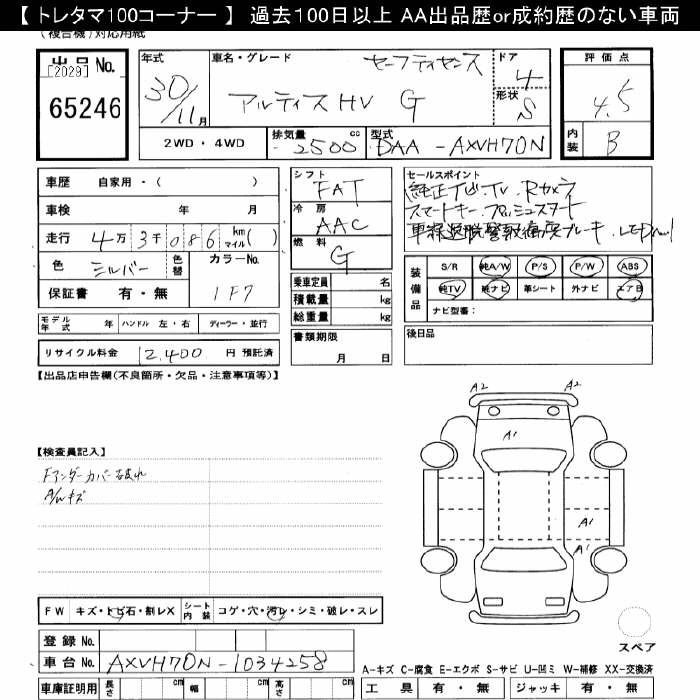 【 トレタマ100コーナー 】 過去100日以上 AA出品歴or成約歴のない車両
(複合機)対応用紙
出品 No.
[2029]
65246
年式
30/11月
車名・グレード
セーフティセンス
アルティスHV G
ドア
4
形状
S
評価点
4.5
内装
B
2WD ・ 4WD
排気量
2500 cc
型式
DAA-AXVH70N
車歴 自家用・( )
車検 年 月
走行 4万3千086 km(マイル)( )
色 シルバー
色替
カラーNo.
1F7
保証書 有・無
モデル年式 年 ハンドル 左・右 ディーラー・並行
リサイクル料金 12,400 円 預託済
シフト
FAT
冷房
AAC
燃料
G
乗車定員 名
積載量 kg
総重量 kg
書類期限
月 日
セールスポイント
純正ナビ・TV・Rカメラ
スマートキー・プッシュスタート
車線逸脱警報 衝突ブレーキ・LED
装備品
S/R 純A/W P/S P/W ABS
純TV 純ナビ 革シート 外ナビ エアB
ナビ型番:
後日品
【出品店申告欄(不良箇所・欠品・注意事項等)】
【検査員記入】
Fアンダーカバー破れ
A/Wキズ
A2 A2
A1
A1
A1
FW キズ・トビ石・割レX シート内装 コゲ・穴・汚レ・シミ・破レ・スレ
登録 No.
車台 No. AXVH70N-1034258
車庫証明用 長さ cm 幅 cm 高さ cm
スペア
A-キズ C-腐食 E-エクボ S-サビ U-凹ミ W-補修 XX-交換済
工具 有・無 ジャッキ 有・無